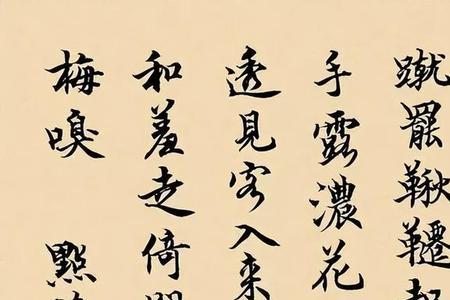 蹴罷鞦韆起
手露濃花
透見客入來
和羞走倚
梅嗅 點